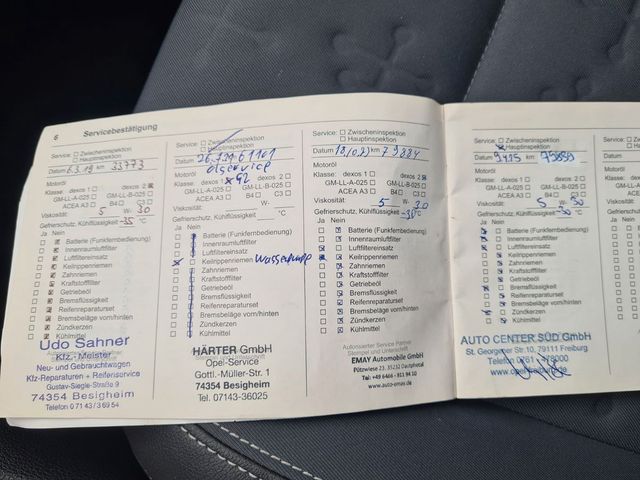 6 Servicebestätigung
Service: Zwischeninspektion
Hauptinspektion
Datum 6.3.19 km 33773
Motoröl
Klasse: dexos 1 dexos 2
GM-LL-A-025 GM-LL-B-025
ACEA A3 B4 C3
Viskosität: 5 W- 30
Gefrierschutz, Kühlflüssigkeit -35 °C
Ja Nein
Batterie (Funkfernbedienung)
Innenraumluftfilter
Luftfiltereinsatz
Keilrippenriemen
Zahnriemen
Kraftstofffilter
Getriebeöl
Bremsflüssigkeit
Reifenreparaturset
Bremsbeläge vorn/hinten
Zündkerzen
Kühlmittel
Udo Sahner
Kfz.-Meister
Neu- und Gebrauchtwagen
Kfz-Reparaturen + Reifenservice
Gustav-Siegle-Straße 9
74354 Besigheim
Telefon 0 71 43 / 3 69 54
Service: Zwischeninspektion
Hauptinspektion
Datum km 61101
Ölservice
Motoröl
Klasse: dexos 1 dexos 2
GM-LL-A-025 GM-LL-B-025
ACEA A3 B4 C3
Viskosität: W-
Gefrierschutz, Kühlflüssigkeit °C
Ja Nein
Batterie (Funkfernbedienung)
Innenraumluftfilter
Luftfiltereinsatz
Keilrippenriemen Wasserpumpe
Zahnriemen
Kraftstofffilter
Getriebeöl
Bremsflüssigkeit
Reifenreparaturset
Bremsbeläge vorn/hinten
Zündkerzen
Kühlmittel
HÄRTER GmbH
Opel-Service
Gottl.-Müller-Str. 1
74354 Besigheim
Tel. 07143-36025
Service: Zwischeninspektion
Hauptinspektion
Datum km 79884
Motoröl
Klasse: dexos 1 dexos 2
GM-LL-A-025 GM-LL-B-025
ACEA A3 B4 C3
Viskosität: 5 W- 30
Gefrierschutz, Kühlflüssigkeit -30 °C
Ja Nein
Batterie (Funkfernbedienung)
Innenraumluftfilter
Luftfiltereinsatz
Keilrippenriemen
Zahnriemen
Kraftstofffilter
Getriebeöl
Bremsflüssigkeit
Reifenreparaturset
Bremsbeläge vorn/hinten
Zündkerzen
Kühlmittel
Autorisierter Service Partner
Stempel und Unterschrift
EMAY Automobile GmbH
Tel: +49 6466 - 911 94 10
www.auto-emas.de
Service: Zwischeninspektion
Hauptinspektion
Datum km
Motoröl
Klasse: dexos 1 dexos 2
GM-LL-A-025 GM-LL-B-025
ACEA A3 B4 C3
Viskosität: 5 W- 30
Gefrierschutz, Kühlflüssigkeit -30 °C
Ja Nein
Batterie (Funkfernbedienung)
Innenraumluftfilter
Luftfiltereinsatz
Keilrippenriemen
Zahnriemen
Kraftstofffilter
Getriebeöl
Bremsflüssigkeit
Reifenreparaturset
Bremsbeläge vorn/hinten
Zündkerzen
Kühlmittel
AUTO CENTER SÜD GmbH
St. Georgener Str. 10, 79111 Freiburg
Telefon 0761
Service:
Datum
Motoröl
Klasse:
Viskosität:
Gefrierschutz
Ja Nein